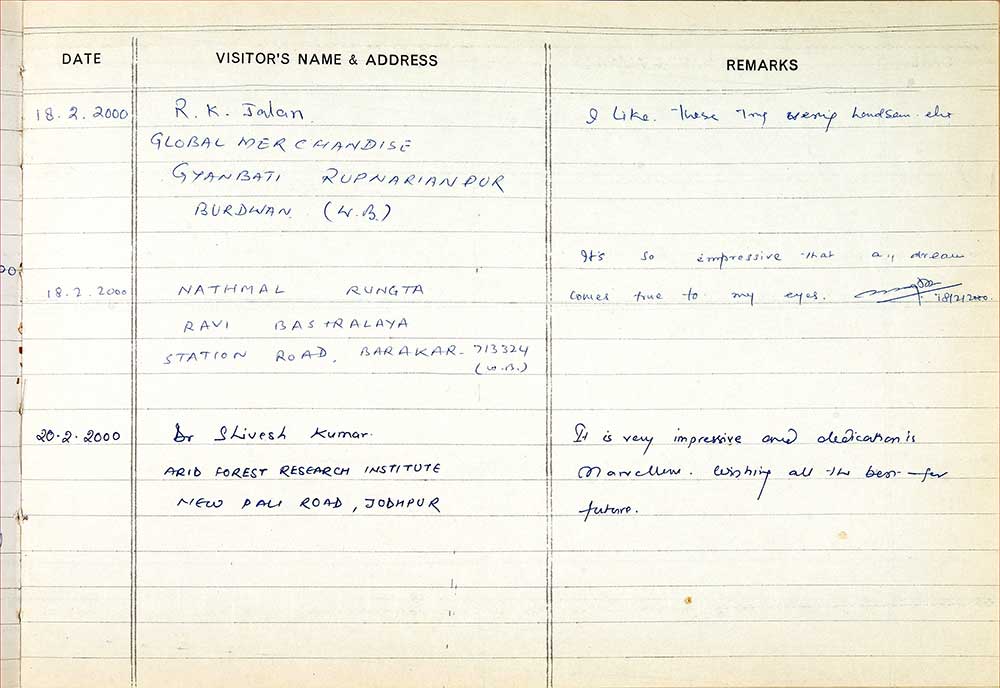 DATE VISITOR'S NAME & ADDRESS REMARKS
18.2.2000 R. K. Jalan. I like. These
GLOBAL MERCHANDISE
GYANBATI RUPNARIANPUR
BURDWAN. (W.B.)
It's so impressive that a dream
18.2.2000 NATHMAL RUNGTA comes true to my eyes. 18/2/2000.
RAVI BASTRALAYA
STATION ROAD, BARAKAR- 713324
(W.B.)
20.2.2000 Dr Shivesh Kumar. It is very impressive and dedication is
ARID FOREST RESEARCH INSTITUTE Marvellous. Wishing all the best for
NEW PALI ROAD, JODHPUR future.